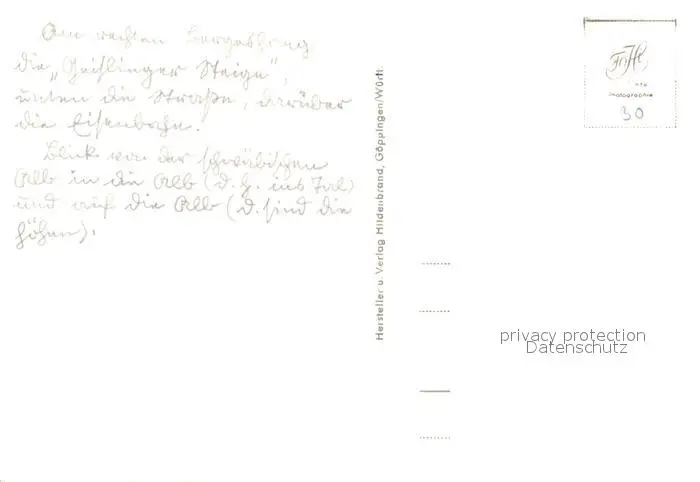 Am rechten Bergabhang
die „Geislinger Steige",
unten die Straße, darüber
die Eisenbahn.
Blick von der schwäbischen
Alb in die Alb (d. h. ins Tal)
und auf die Alb (d. sind die
Höhen).
Hersteller u. Verlag Hildenbrand, Göppingen/Württ.
Foto
photographie
30
privacy protection
Datenschutz